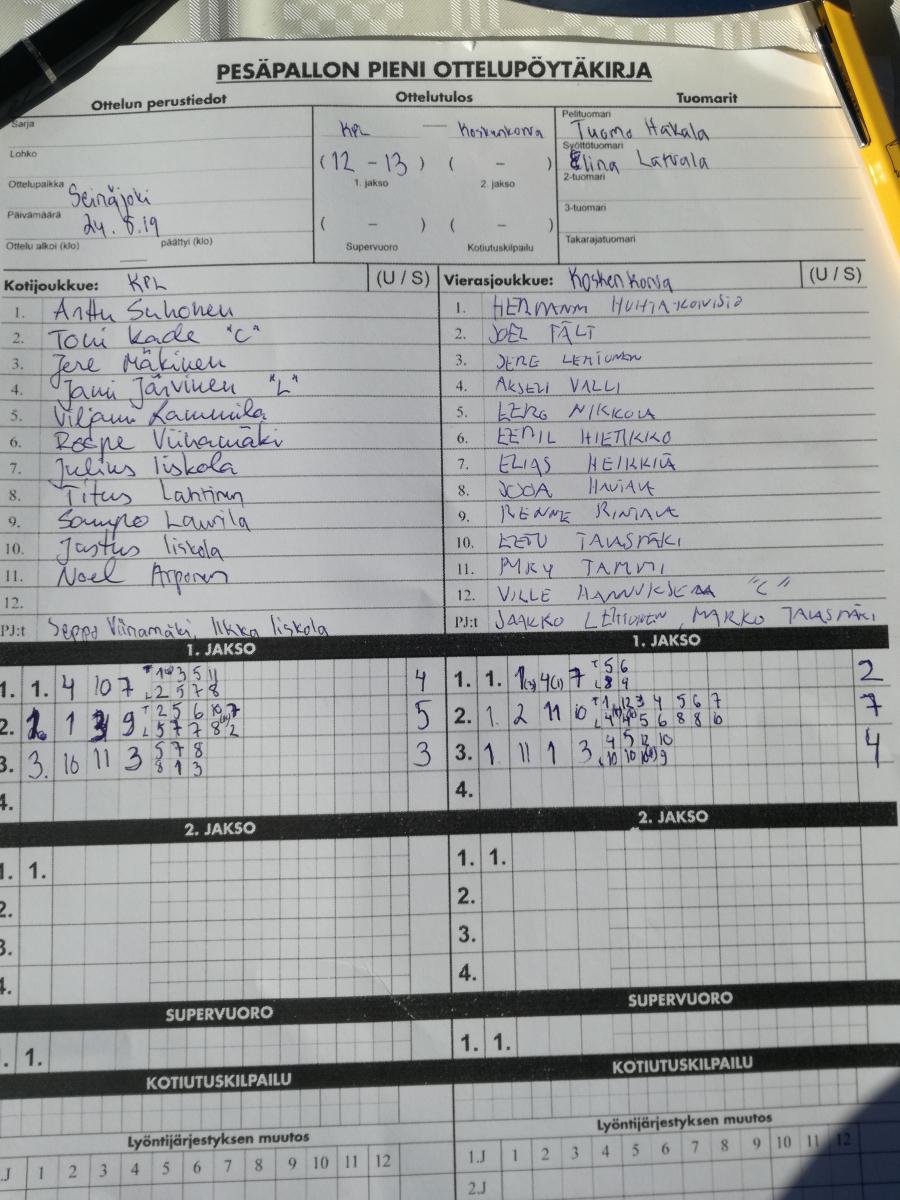 PESÄPALLON PIENI OTTELUPÖYTÄKIRJA
Ottelun perustiedot
Sarja
Lohko
Ottelupaikka Seinäjoki
Päivämäärä 24.8.19
Ottelu alkoi (klo) päättyi (klo)
Ottelutulos
KPL — Koskenkorva
(12 - 13) ( - )
1. jakso 2. jakso
( - ) ( - )
Supervuoro Kotiutuskilpailu
Tuomarit
Pelituomari Tuomo Hakala
Syöttötuomari Elina Latvala
2-tuomari
3-tuomari
Takarajatuomari
Kotijoukkue: KPL (U / S)
1. Arttu Suhonen
2. Toni Kade "C"
3. Jere Mäkinen
4. Jami Järvinen "L"
5. Viljami Lammila
6. Roope Viinamäki
7. Julius Iiskola
8. Titus Lahtinen
9. Sampo Laurila
10. Justus Iiskola
11. Noel Arponen
12.
PJ:t Seppo Viinamäki, Ilkka Iiskola
Vierasjoukkue: Koskenkorva (U / S)
1. HERMANNI HUHTA-KOIVISTO
2. JOEL
3. JERE LEHTONEN
4. AKSELI VALLI
5. EERO NIKKOLA
6. EEMIL HIETIKKO
7. ELIAS HEIKKILÄ
8. JOOA
9. RINTALA
10. EETU TALASMÄKI
11. TAMMI
12. VILLE "C"
PJ:t JAAKKO LEHTONEN, MARKO TALASMÄKI
1. JAKSO
1. 1. 4 10 7 4
2. 1 9 5
3. 3. 10 11 3 3
4.
1. JAKSO
1. 1. 1(3) 4(1) 7 2
2. 1. 2 11 10 7
3. 1 11 1 3 4
4.
2. JAKSO
1. 1.
2.
3.
4.
2. JAKSO
1. 1.
2.
3.
4.
SUPERVUORO
1.
SUPERVUORO
1. 1.
KOTIUTUSKILPAILU
KOTIUTUSKILPAILU
Lyöntijärjestyksen muutos
.J 1 2 3 4 5 6 7 8 9 10 11 12
Lyöntijärjestyksen muutos
1.J 1 2 3 4 5 6 7 8 9 10 11 12
2.J